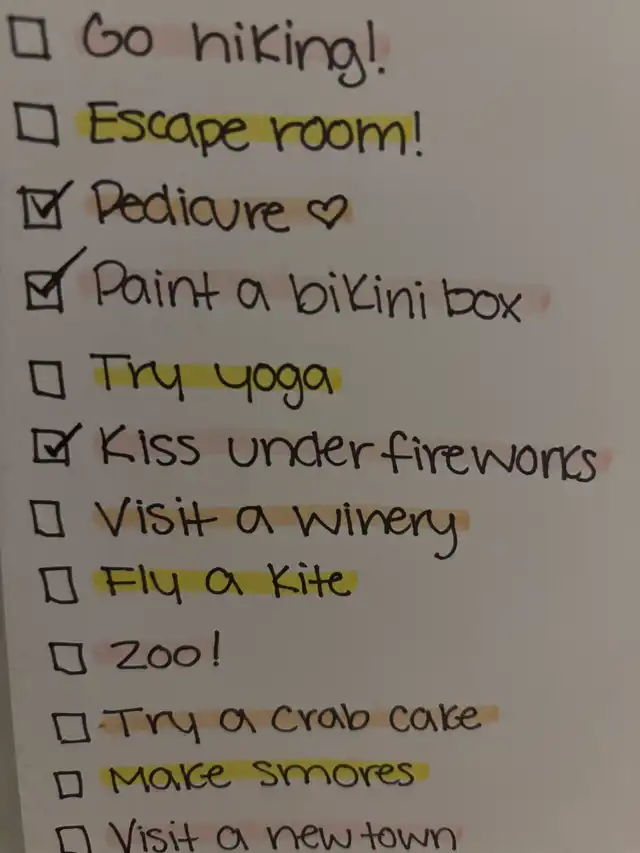 Go hiking!
Escape room!
Pedicure ♡
Paint a bikini box
Try yoga
Kiss under fireworks
Visit a winery
Fly a kite
Zoo!
Try a crab cake
Make smores
Visit a new town